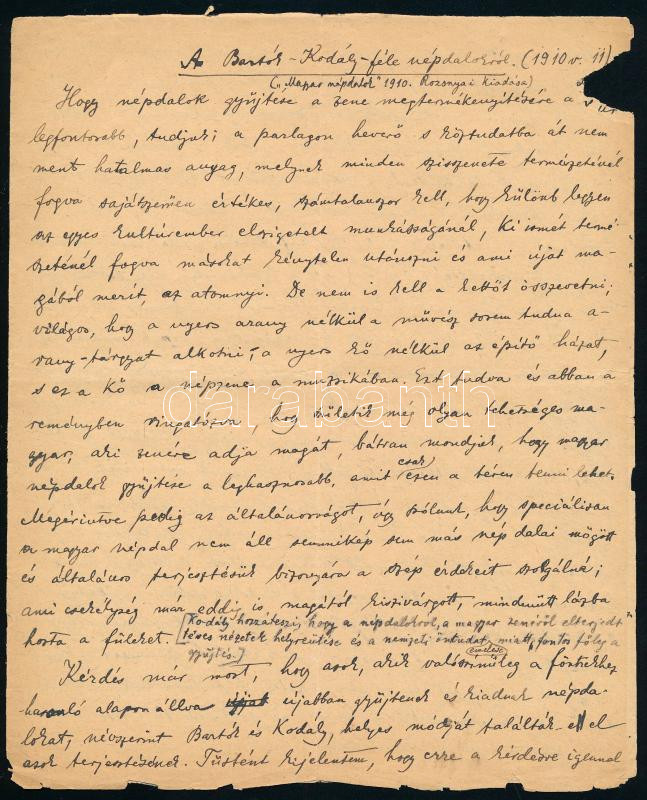 A Bartók-Kodály-féle népdalokról. (1910 v. 11)
("Magyar népdalok" 1910. Rozsnyai kiadása)
Hogy népdalok gyűjtése a zene megtermékenyítésére a
legfontosabb, tudjuk; a parlagon heverő s köztudatba át nem
ment hatalmas anyag, melynek minden természeténél
fogva sajátszerűen értékes, számtalanszor kell, hogy különb legyen
az egyes kultúrember elszigetelt munkásságánál, ki ismét termé-
szeténél fogva másokat kénytelen utánozni és ami újat ma-
gából merít, az atomnyi. De nem is kell a kettőt összevetni;
világos, hogy a nyers arany nélkül a művész sosem tudna a-
rany-tárgyat alkotni, a nyers kő nélkül az építő házat,
s ez a kő a népzene a muzsikában. Ezt tudva és abban a
reményben ringatózva, hogy születik még olyan tehetséges ma-
gyar, aki zenére adja magát, bátran mondjuk, hogy magyar
népdalok gyűjtése a leghasznosabb, amit csak ezen a téren tenni lehet.
Megérintve pedig az általánosságot, úgy szólunk, hogy speciálisan
a magyar népdal nem áll semmikép sem más nép dalai mögött
és általános terjesztésük bizonyára a szép érdekeit szolgálná;
ami csekélység már eddig is magától kiszivárgott, mindenütt lázba
hozta a füleket. [Kodály hozzáteszi, hogy a népdalokról, a magyar zenéről elterjedt
téves nézetek helyreütése és a nemzeti öntudat emelése miatt fontos főleg a
gyűjtés.]
Kérdés már most, hogy azok, akik valószínűleg a föntiekhez
hasonló alapon állva újabban gyűjtenek és kiadnak népda-
lokat, névszerint Bartók és Kodály, helyes módját találták-e el
azok terjesztésének. Tüstént kijelentem, hogy erre a kérdésre igennel
darabanth